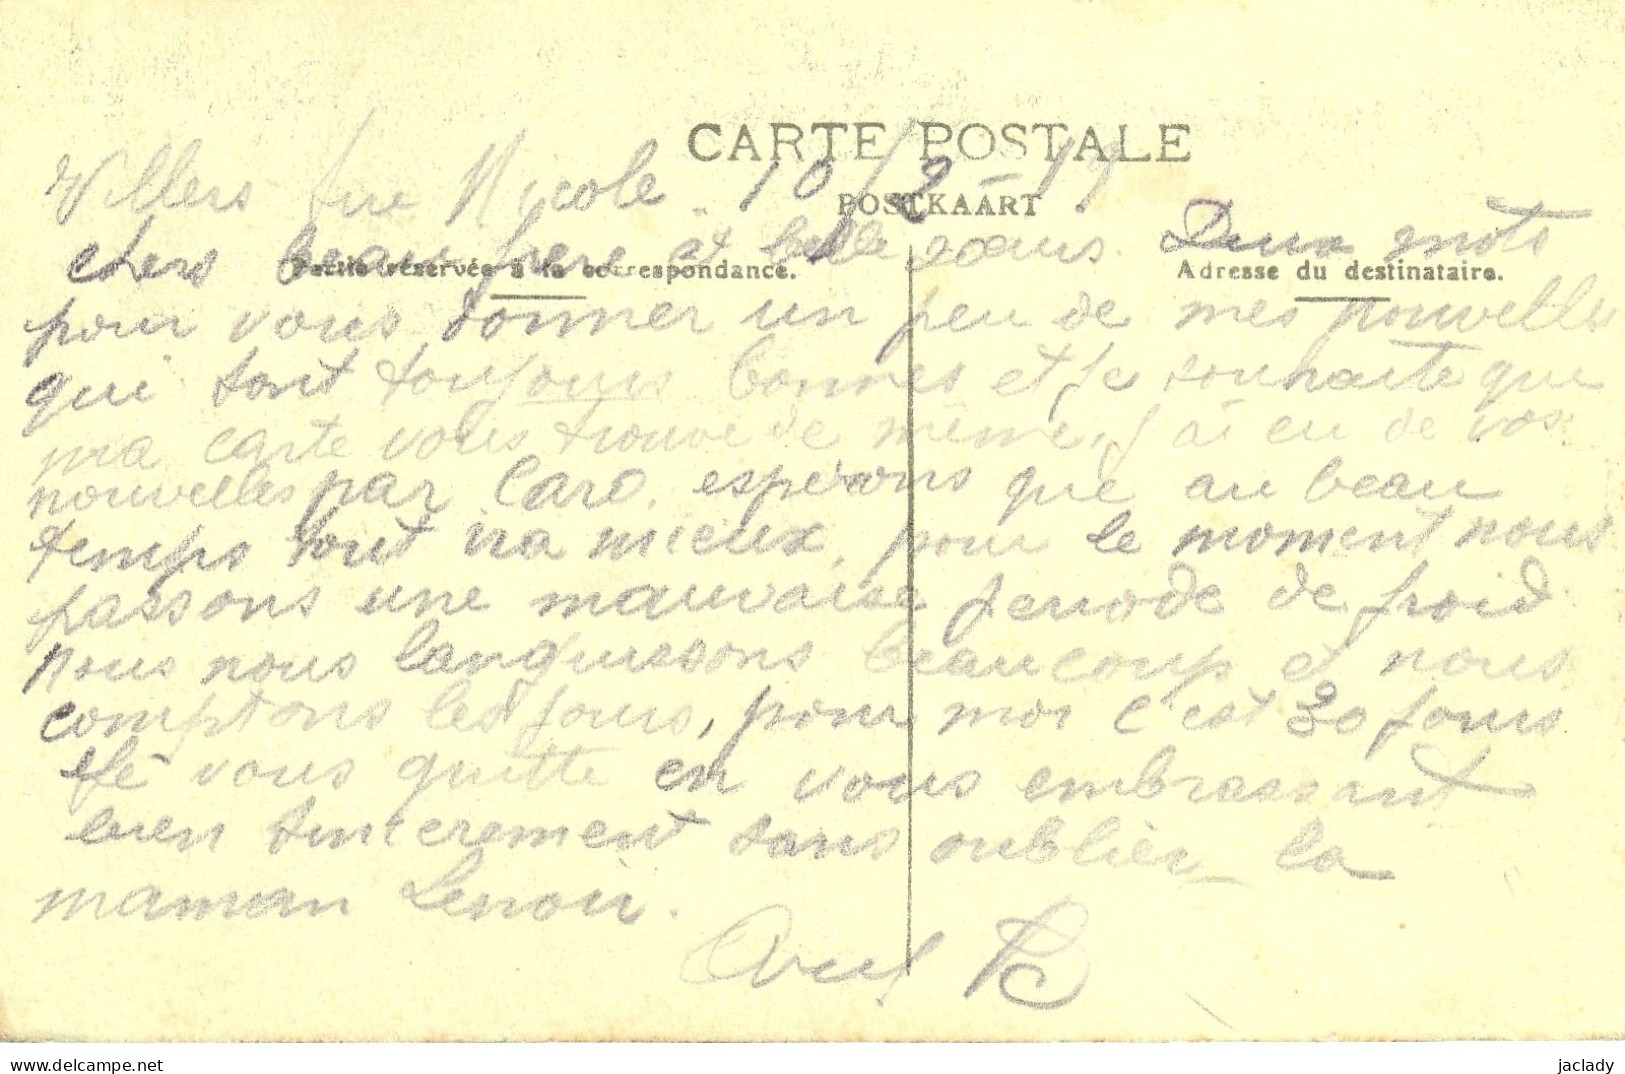 CARTE POSTALE
Villers sur Nicole 10/2-19
POSTKAART
chers beau frere et belle sœurs. Deux mots
Partie réservée à la correspondance.
Adresse du destinataire.
pour vous donner un peu de mes nouvelles
qui sont toujours bonnes et je souhaite que
ma carte vous trouve de même, j'ai eu de vos
nouvelles par Caro. esperons que au beau
temps tout ira mieux, pour le moment nous
passons une mauvaise periode de froid
Nous nous languissons beaucoup et nous
comptons les jours, pour moi c'est 30 jours
Je vous quitte en vous embrassant
bien sincerement sans oublier la
maman Lenoir.
jaclady